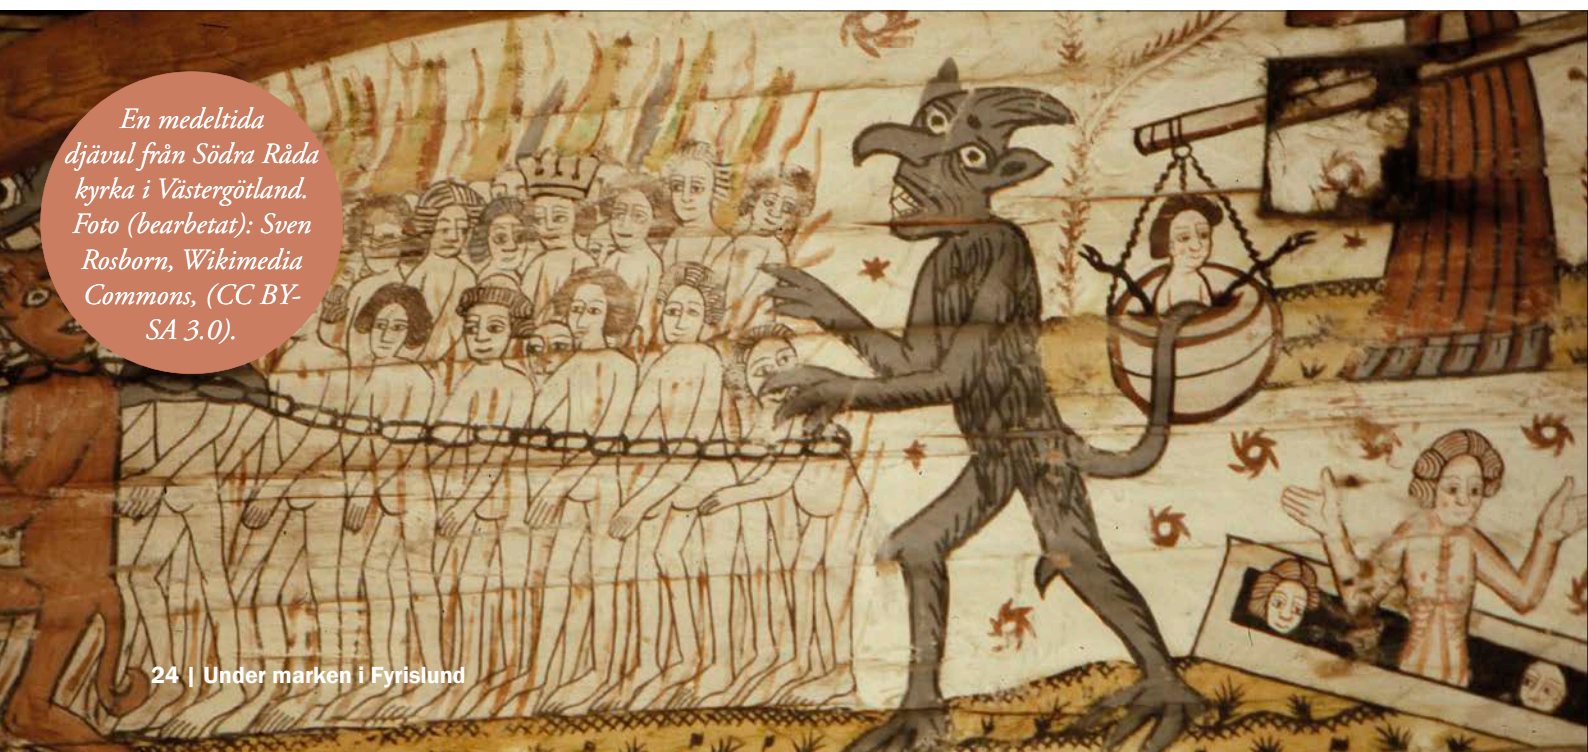 En medeltida
djävul från Södra Råda
kyrka i Västergötland.
Foto (bearbetat): Sven
Rosborn, Wikimedia
Commons, (CC BY-
SA 3.0).
24 | Under marken i Fyrislund